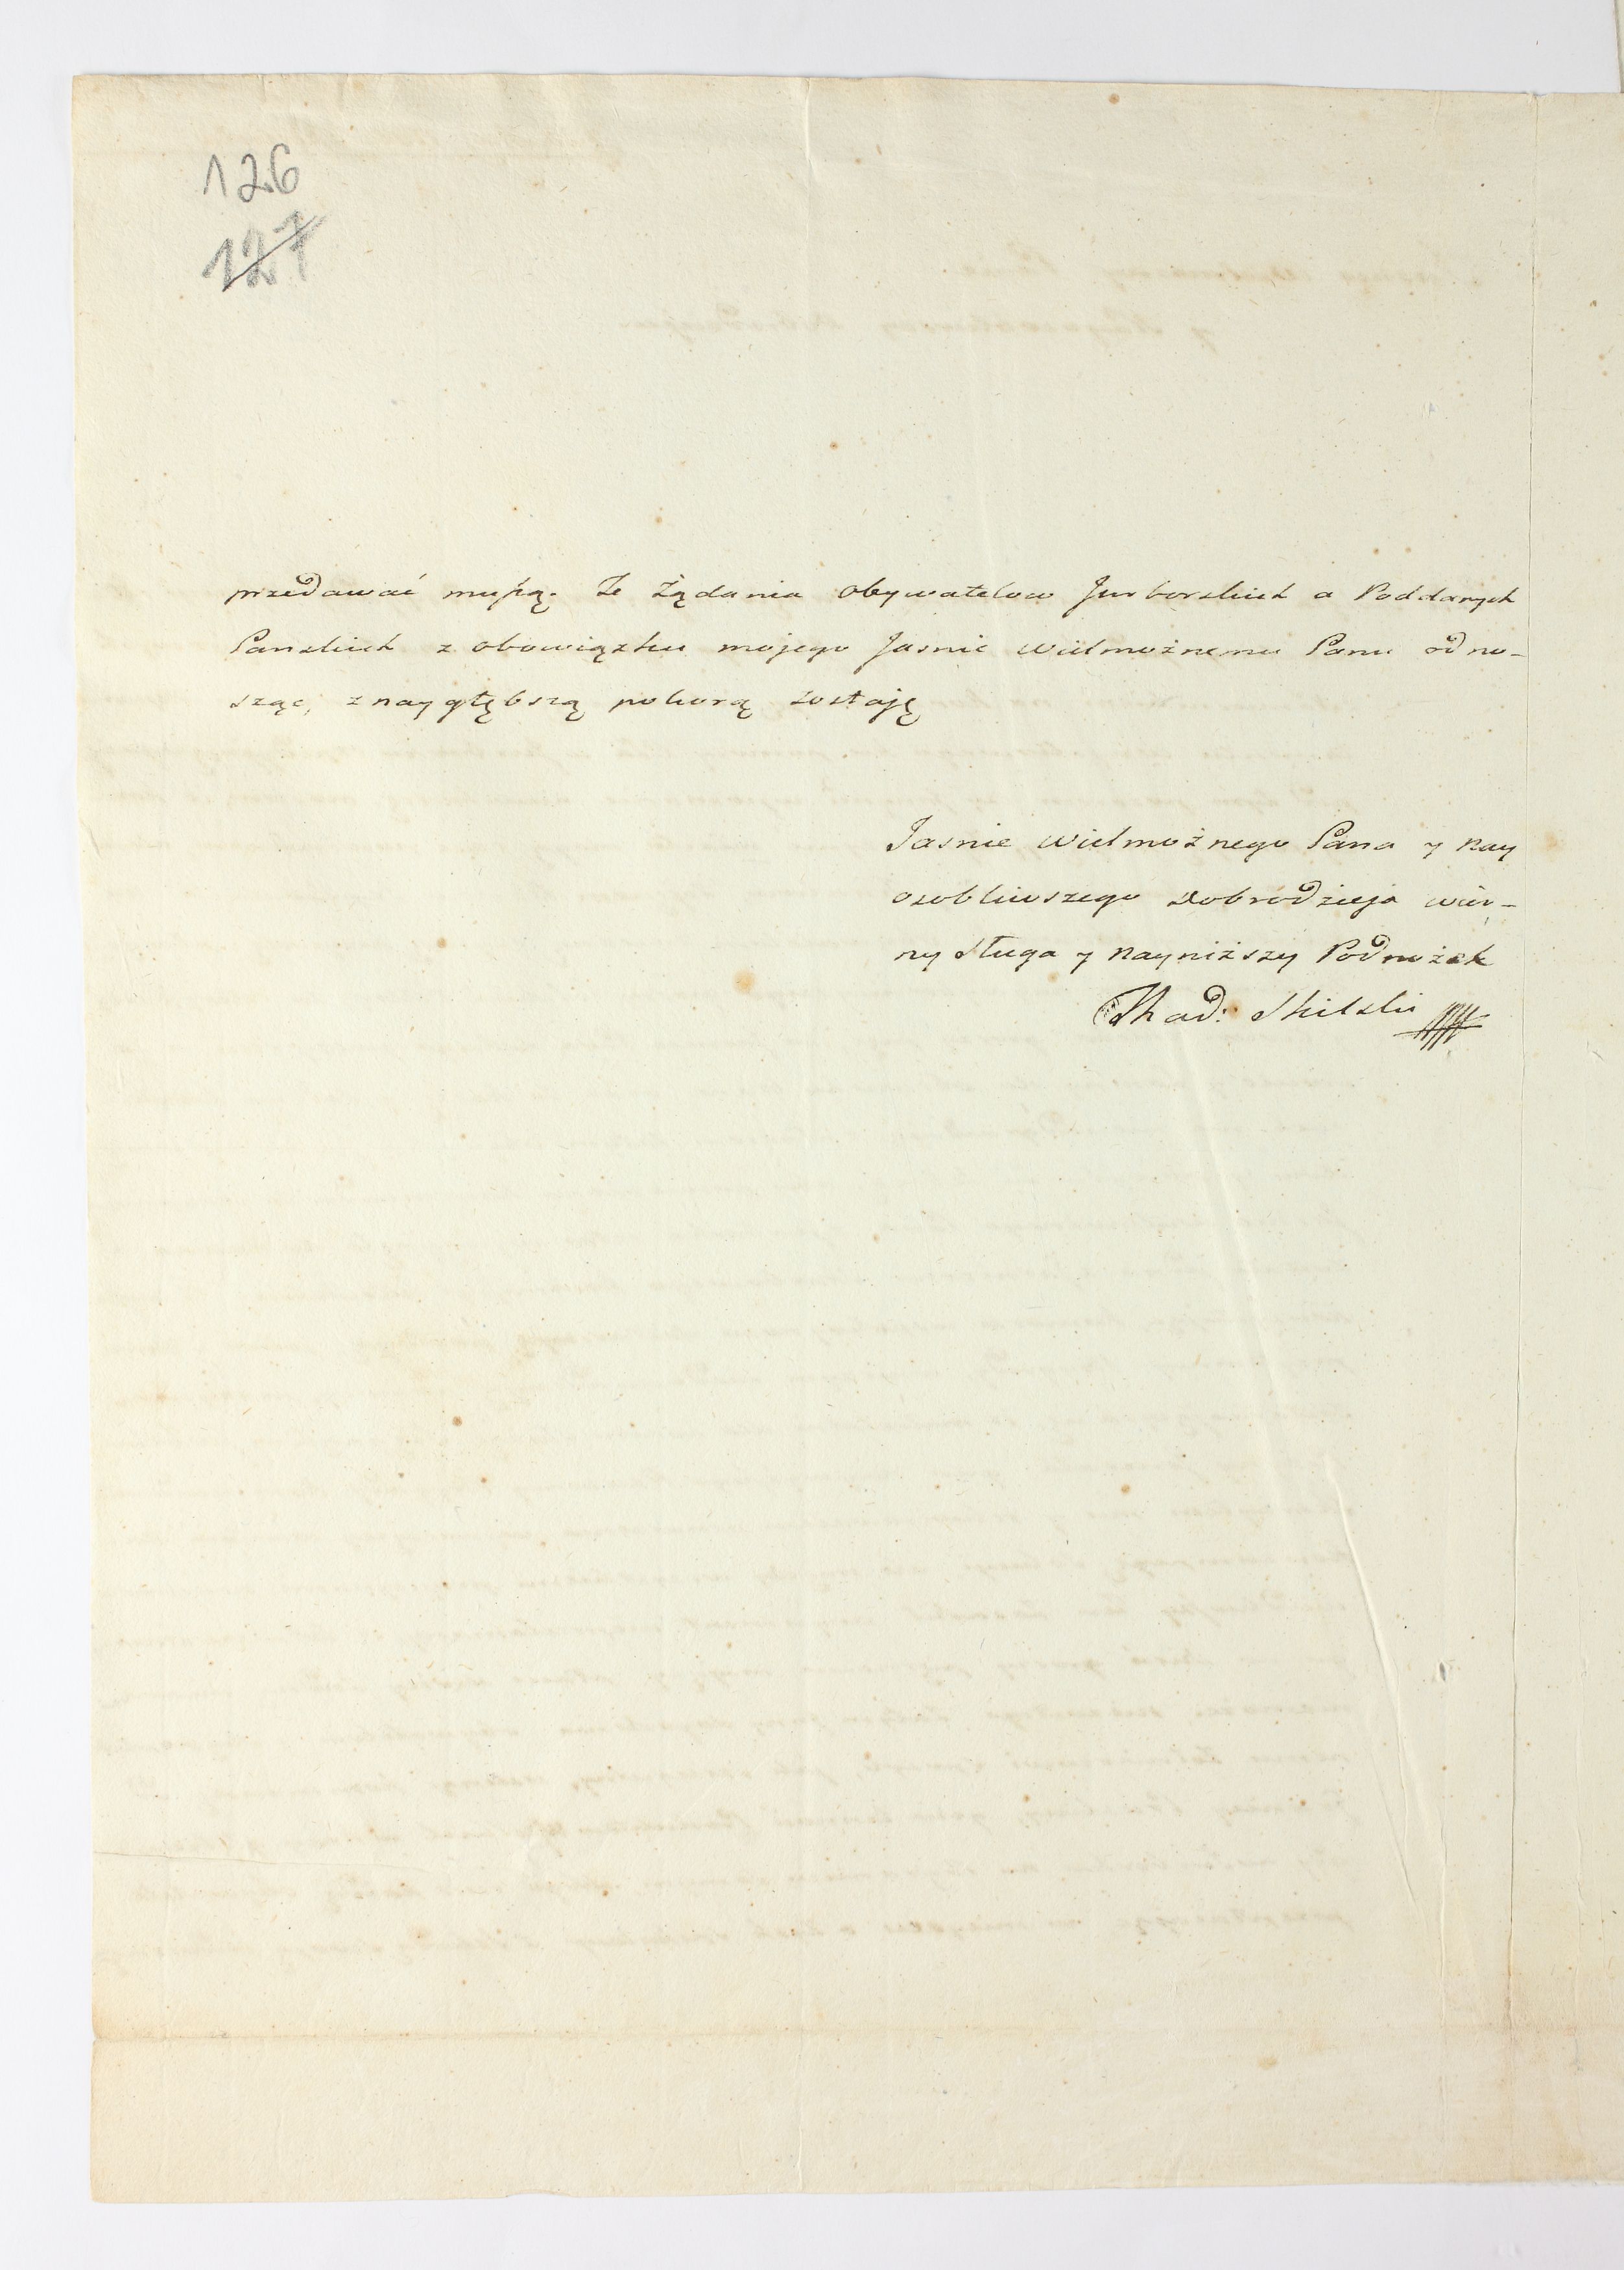 126
127
przedawać muszą. Te żądania obywatelow Jurborskich a Poddanych
Panskich z obowiązku mojego Jasnie Wielmożnemu Panu odno-
sząc, z naygłębszą pokorą zostaję
Jasnie Wielmożnego Pana y nay
osobliwszego Dobrodzieja wier-
ny sługa y nayniższy Podnożek
Thad: